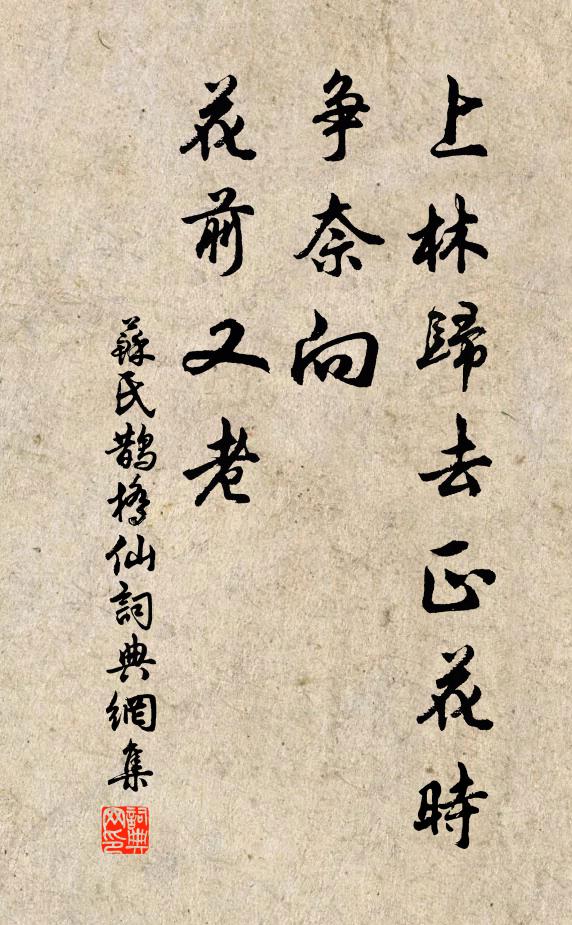 上林歸去正花時
争奈向
花前又老
蘇氏鵲橋仙詞典網集
詞典網印